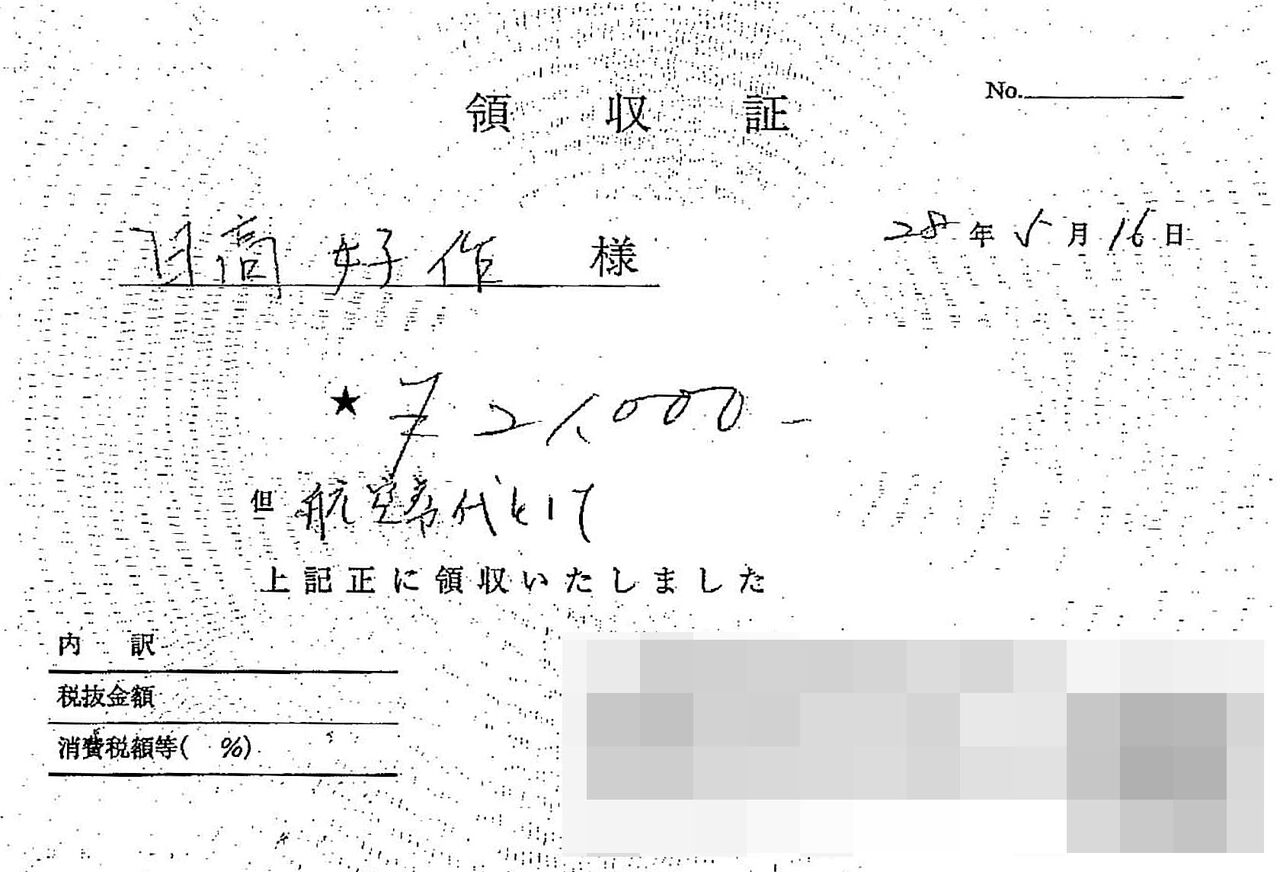 No.
領収証
28年5月16日
日高 好作 様
★ ¥21,000-
但 航空券代として
上記正に領収いたしました
内 訳
税抜金額
消費税額等( %)